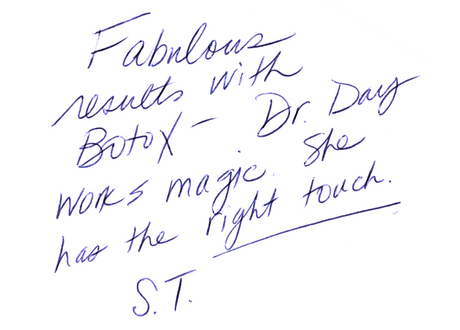 Fabulous
results with
Botox - Dr. Day
works magic. She
has the right touch.
S.T.